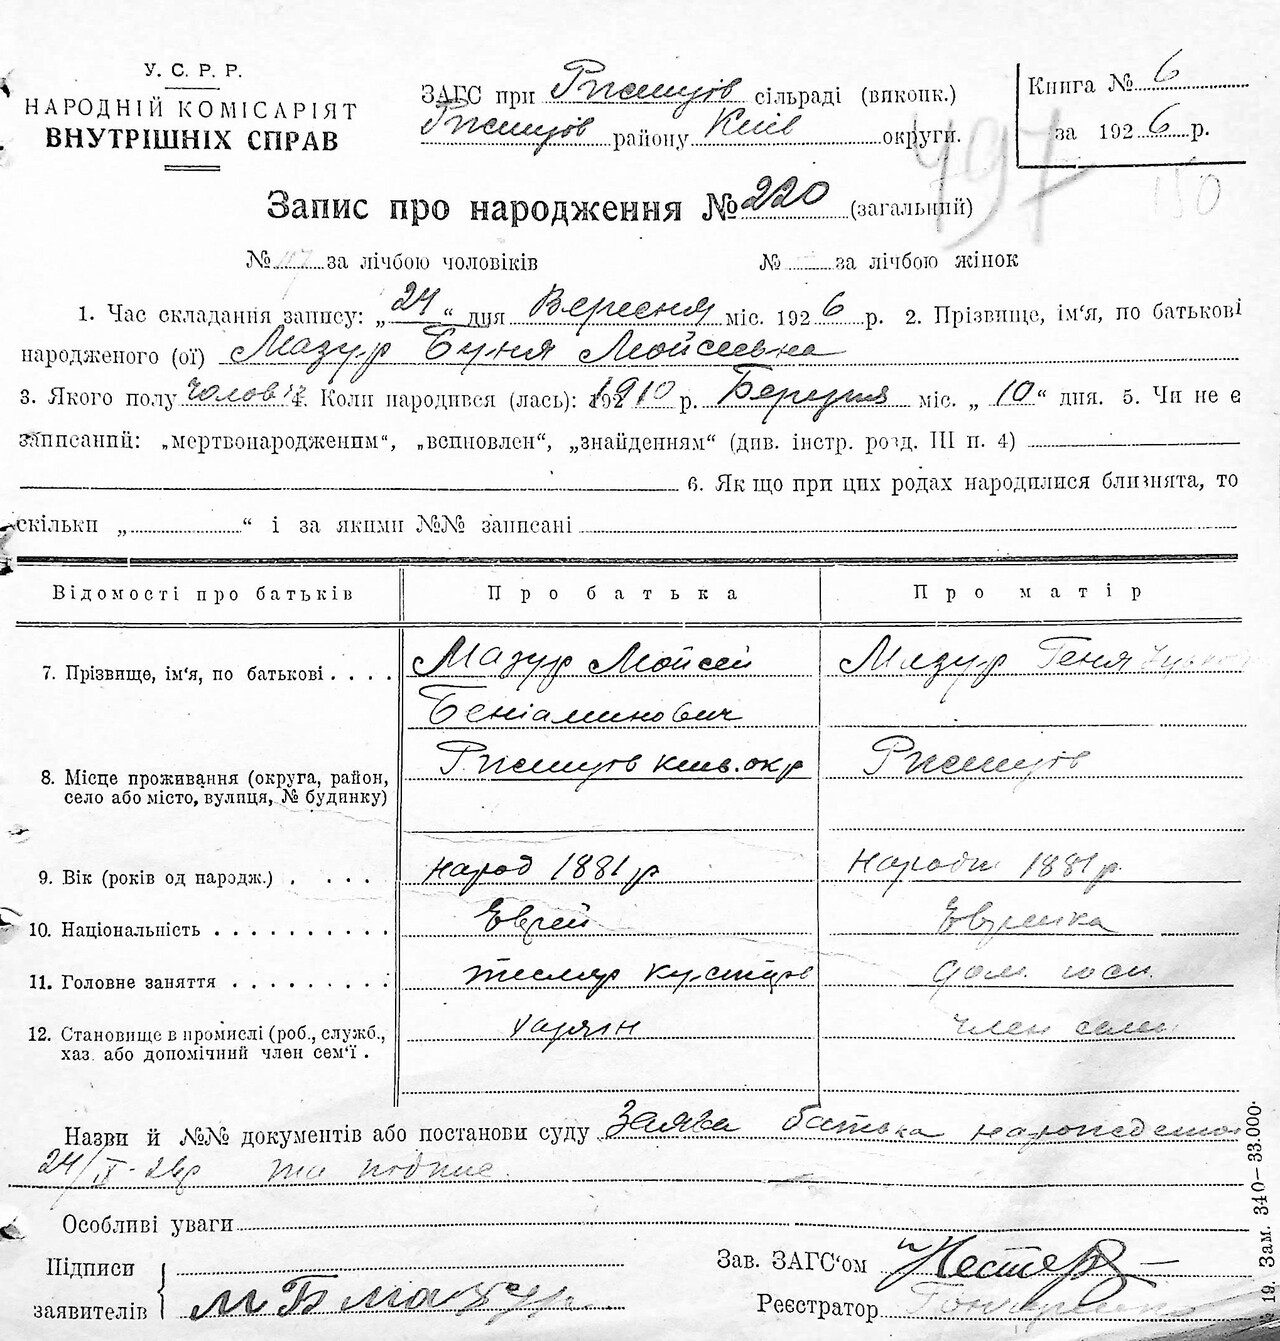 У. С. Р. Р.
НАРОДНІЙ КОМІСАРІЯТ
ВНУТРІШНІХ СПРАВ
ЗАГС при Ржищів сільраді (виконк.)
Ржищів району Київ округи.
Книга № 6
за 1926 р.
497
150
Запис про народження № 220 (загальний)
№ 117 за лічбою чоловіків № за лічбою жінок
1. Час складання запису: „24“ дня Вересня міс. 1926 р. 2. Прізвище, ім'я, по батькові
народженого (ої) Мазур Буня Мойсеевна
3. Якого полу чоловіч 4. Коли народився (лась): 1910 р. Березня міс. „10“ дня. 5. Чи не є
записаний: „мертвонародженим“, „вспновлен“, „знайденням“ (див. інстр. розд. III п. 4)
6. Як що при цих родах народилися близнята, то
скільки „ “ і за якими №№ записані
Відомості про батьків Про батька Про матір
7. Прізвище, ім'я, по батькові . . . . Мазур Мойсей Мазур Геня
Беніаминович
8. Місце проживання (округа, район, Ржищів київ. окр Ржищів
село або місто, вулиця, № будинку)
9. Вік (років од народж.) . . . . народ 1881 р народж 1881 р.
10. Національність . . . . . . . . . . Еврей Еврейка
11. Головне заняття . . . . . . . . . дом. госп.
12. Становище в промислі (роб., служб., хазяін член семи
хаз. або допомічний член сем'ї .
Назви й №№ документів або постанови суду Заява батька
24/IX-26р та подпис.
Особливі уваги
Підписи
заявителів М Б Мазур
Зав. ЗАГС'ом Нестер
Реєстратор
№ 19. Зам. 340—33.000.